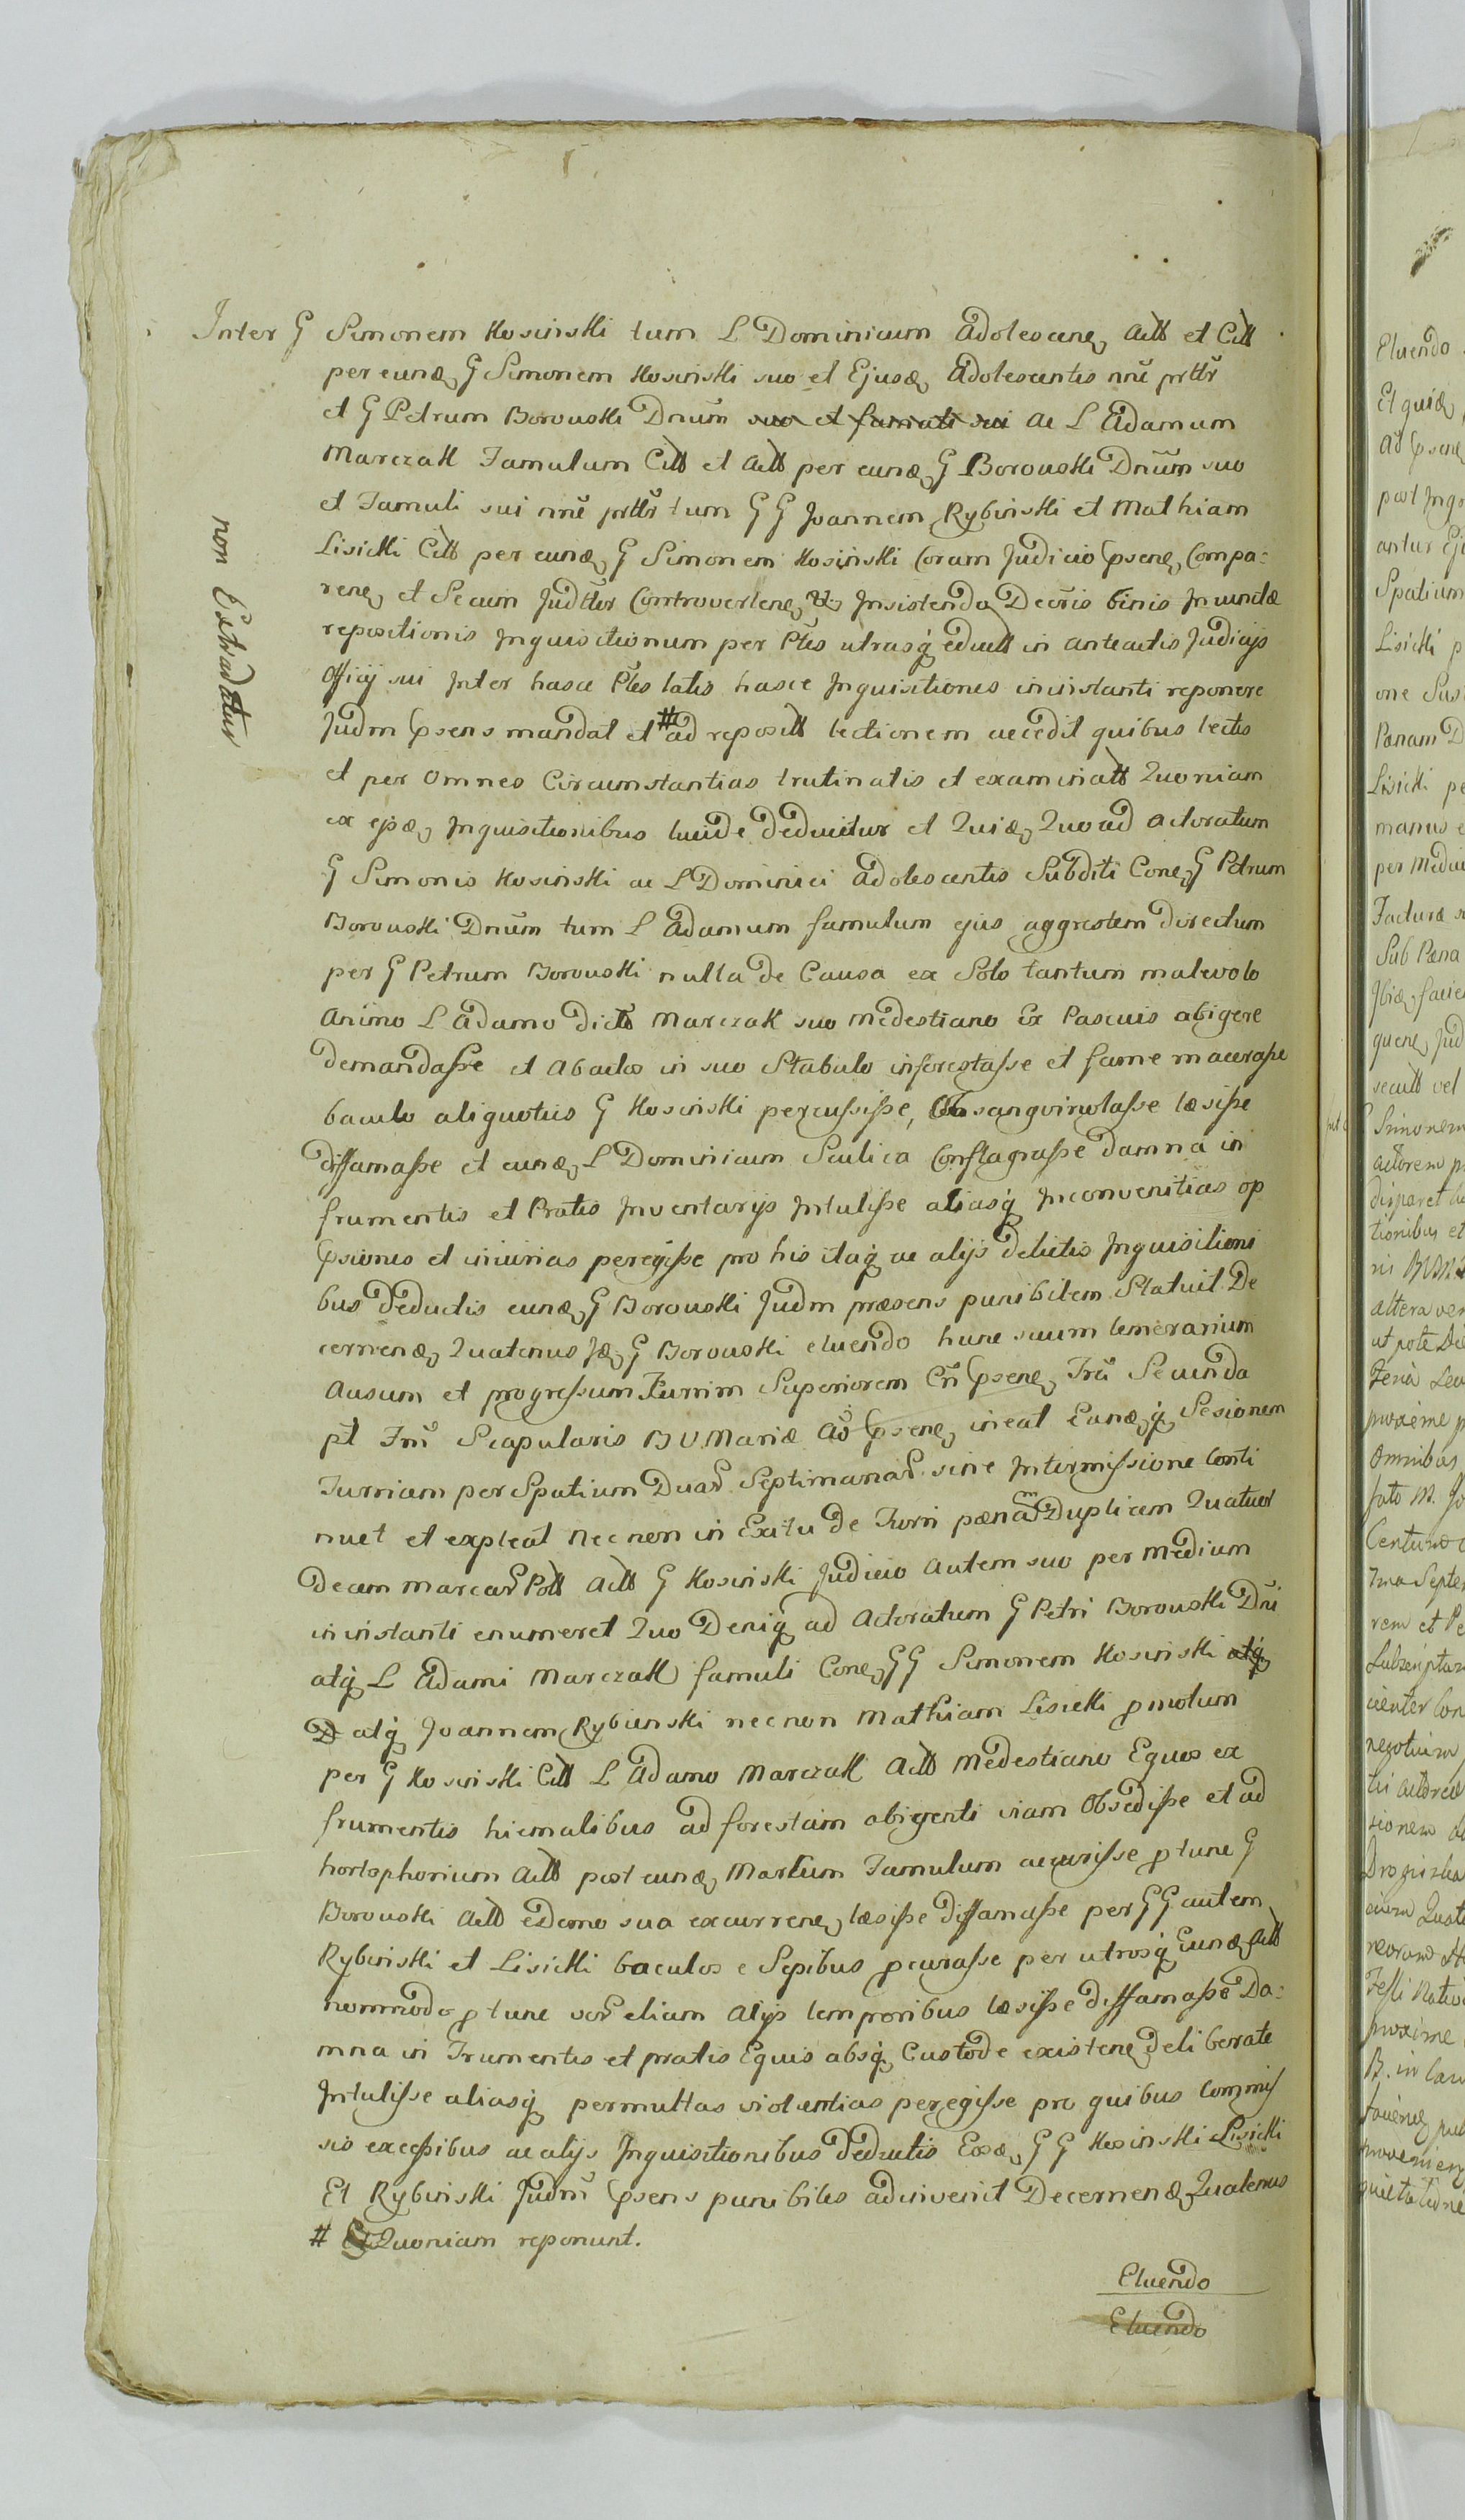 Inter G Simonem Kosinski tum L Dominicum Adolescene, Actt et Citt
per eund, G Simonem Kosinski suo et Ejusd, Adolescentis nnē prttr
et G Petrum Borouski Dnūm suo et famuli sui ac L Adamum
Marczak Famulum Citt et Actt per eund, G Borouski Dnūm suo
et Famuli sui nnē prttr tum GG Joannem Rybinski et Mathiam
Lisicki Citt per eund, G Simonem Kosinski Coram Judicio psene, Compa:
rene, et Secum Judtter Controvertene, Insistendo Decris binis Inunctæ
repositionis Inquisitionum per Ptes utrasq eductt in anteactis Judicijs
Officij sui Inter hasce Ptes latis hasce Inquisitiones in instanti reponere
Judm psens mandat et # ad repositt lectionem accedit quibus lectis
et per Omnes Circumstantias trutinatis et examinatt Quoniam
ex ejsd, Inquisitionibus lucide deducitur et Quid, Quo ad Actoratum
G Simonis Kosinski ac L Dominici Adolescentis Subditi Cone, G Petrum
Borouski Dnūm tum L Adamum famulum ejus aggrestem directum
per G Petrum Borouski nulla de Causa ex Solo tantum malevolo
Animo L Adamo dicto Marczak suo Medestiano Ex Pascuis abigere
demandasse et Abactos in suo Stabulo inforestasse et fame macerasse
baculo aliquotius G Kosinski percussisse, sanguinolasse læsisse
diffamasse et eund, L Dominicum Scutica Conflagrasse damna in
frumentis et Pratis Inventarijs Intulisse aliasq Inconvenitias op
psiones et iniurias peregisse pro his itaq ac alijs delictis Inquisitioni
bus deductis eund, G Borouski Judm præsens punibilem Statuit De
cernend, Quatenus Id, G Borouski eluendo hunc suum temerarium
Ausum et progressum Turrim Superiorem Cn psene, Fra Secunda
pt Fm Scapularis B V Mariæ Ad psene, ineat Eandq Sesionem
Turriam per Spatium Duar Septimanar sine Intermissione Conti
nuet et expleat nec non in Exitu de Turri pænam Duplicem Quatuor
Decem marcar Pott Actt G Kosinski Judicio Autem suo per Medium
in instanti enumeret Quo Deniq ad Actoratum G Petri Borouski Dni
atq L Adami Marczak famuli Cone, GG Simonem Kosinski atq
D atq Joannem Rybienski nec non Mathiam Lisicki pmotum
per G Kosinski Citt L Adamo Marczak Actt Medestiano Equos ex
frumentis hiemalibus ad forestam abigenti viam Obsedisse et ad
hortophorium Actt post eund, Martum Famulum accurisse ptunc G
Borouski Actt e domo sua excurrene, læsisse diffamasse per GG autem
Rybinski et Lisicki baculos e Sepibus pcurasse per utrosq eund, Actt
nommodo ptunc etiam Alijs temporibus læsisse diffamasse Da:
mna in Frumentis et pratis Equis absq Custode existene, deliberate
Intulisse aliasq permultas violentias peregisse pro quibus Commis
sis excessibus ac alijs Inquisitionibus deductis Eosd, GG Kosinski Lisicki
Et Rybinski Judm psens punibiles adinvenit Decernend, Quatenus
# Et Quoniam reponunt.
Eluendo
Eluendo
non Extraditur
Eluendo
Et quid,
Ad psene,
Spatium
Lisicki p
Pænam D
Lisicki pe
manus e
Sub Pæna
secutt vel
Simonem
altera ver
proxime p
Omnibus
negotium
proxime